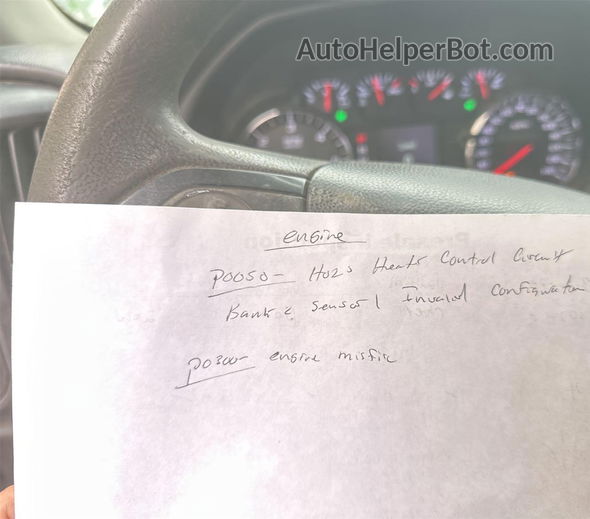 AutoHelperBot.com
engine
P0050- HO2S Heater Control Circuit
Bank 2 Sensor 1 Invalid Configuration
P0300- engine misfire